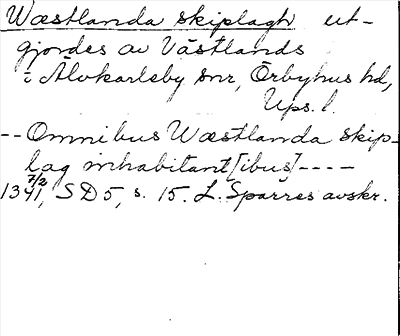 Wæstlanda skiplagh ut-
gjordes av Västlands
i Älvkarleby snr, Örbyhus hd,
Ups. l.
-- Omnibus Wæstlanda skip-
lag inhabitant[ibus] ----
7/2
1341, SD 5, s. 15. L. Sparres avskr.